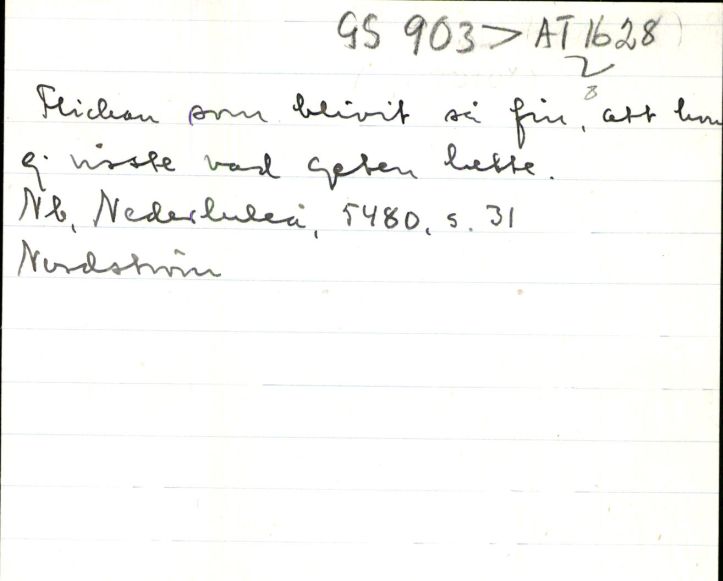 GS 903 > AT 1628
8
Flickan som blivit så fin, att hon
ej visste vad geten hette.
Nb, Nederluleå, 5480, s. 31
Nordström